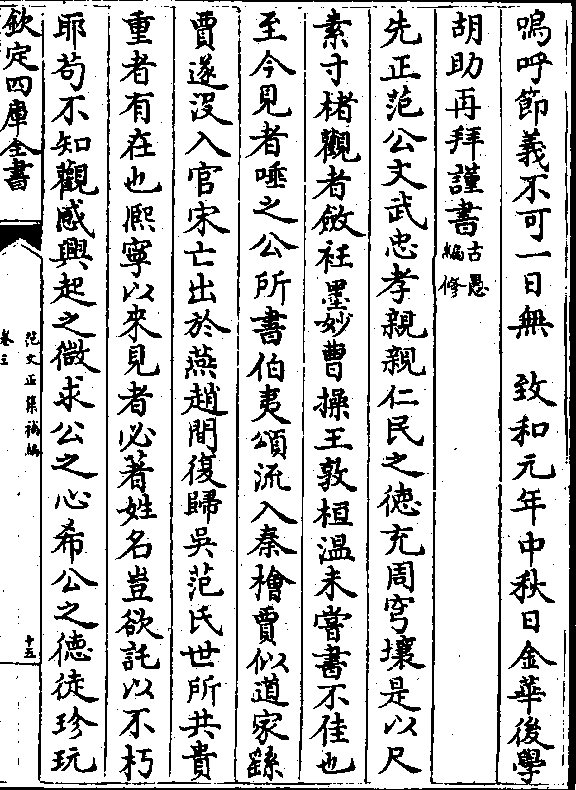 嗚呼節義不可一日無　致和元年中秋日金華後學
胡助再拜謹書古愚編修
先正范公文武忠孝親親仁民之徳充周穹壤是以尺
素寸楮觀者斂衽墨妙曹操王敦桓温未嘗書不佳也
至今見者唾之公所書伯夷頌流入秦檜賈似道家繇
賈遂沒入官宋亡出於燕趙間復歸吳范氏世所共貴
重者有在也熈寧以來見者必著姓名豈欲託以不朽
耶茍不知觀感興起之㣲求公之心希公之徳徒珍玩
欽定四庫全書
范文正集補編
卷三
十五